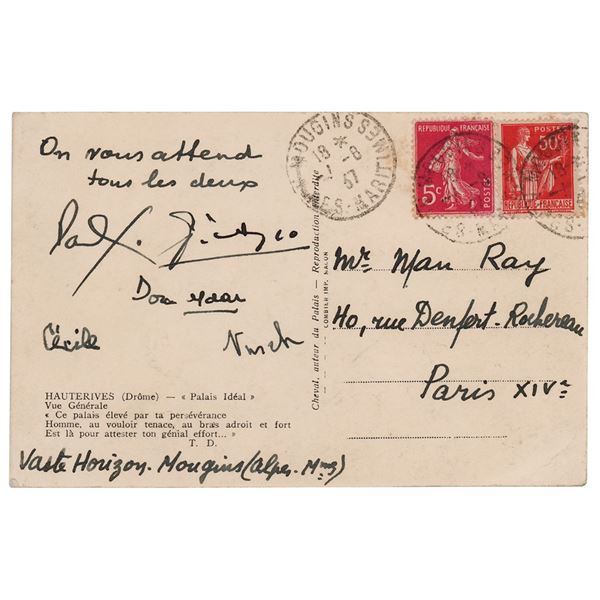 On vous attend
tous les deux
Paul
Dora Maar
Cécile Nusch
HAUTERIVES (Drôme) — « Palais Idéal »
Vue Générale
« Ce palais élevé par ta persévérance
Homme, au vouloir tenace, au bras adroit et fort
Est là pour attester ton génial effort... »
T. D.
Vaste Horizon. Mougins (Alpes-Mmes)
Cheval, auteur du Palais — Reproduction interdite
COMBIER IMP. MACON
MOUGINS
18 *
37
ALPES-MARITIMES
REPUBLIQUE FRANÇAISE
5c
POSTES
POSTES
50c
REPUBLIQUE-FRANÇAISE
Mr. Man Ray
40, rue Denfert-Rochereau
Paris XIVe